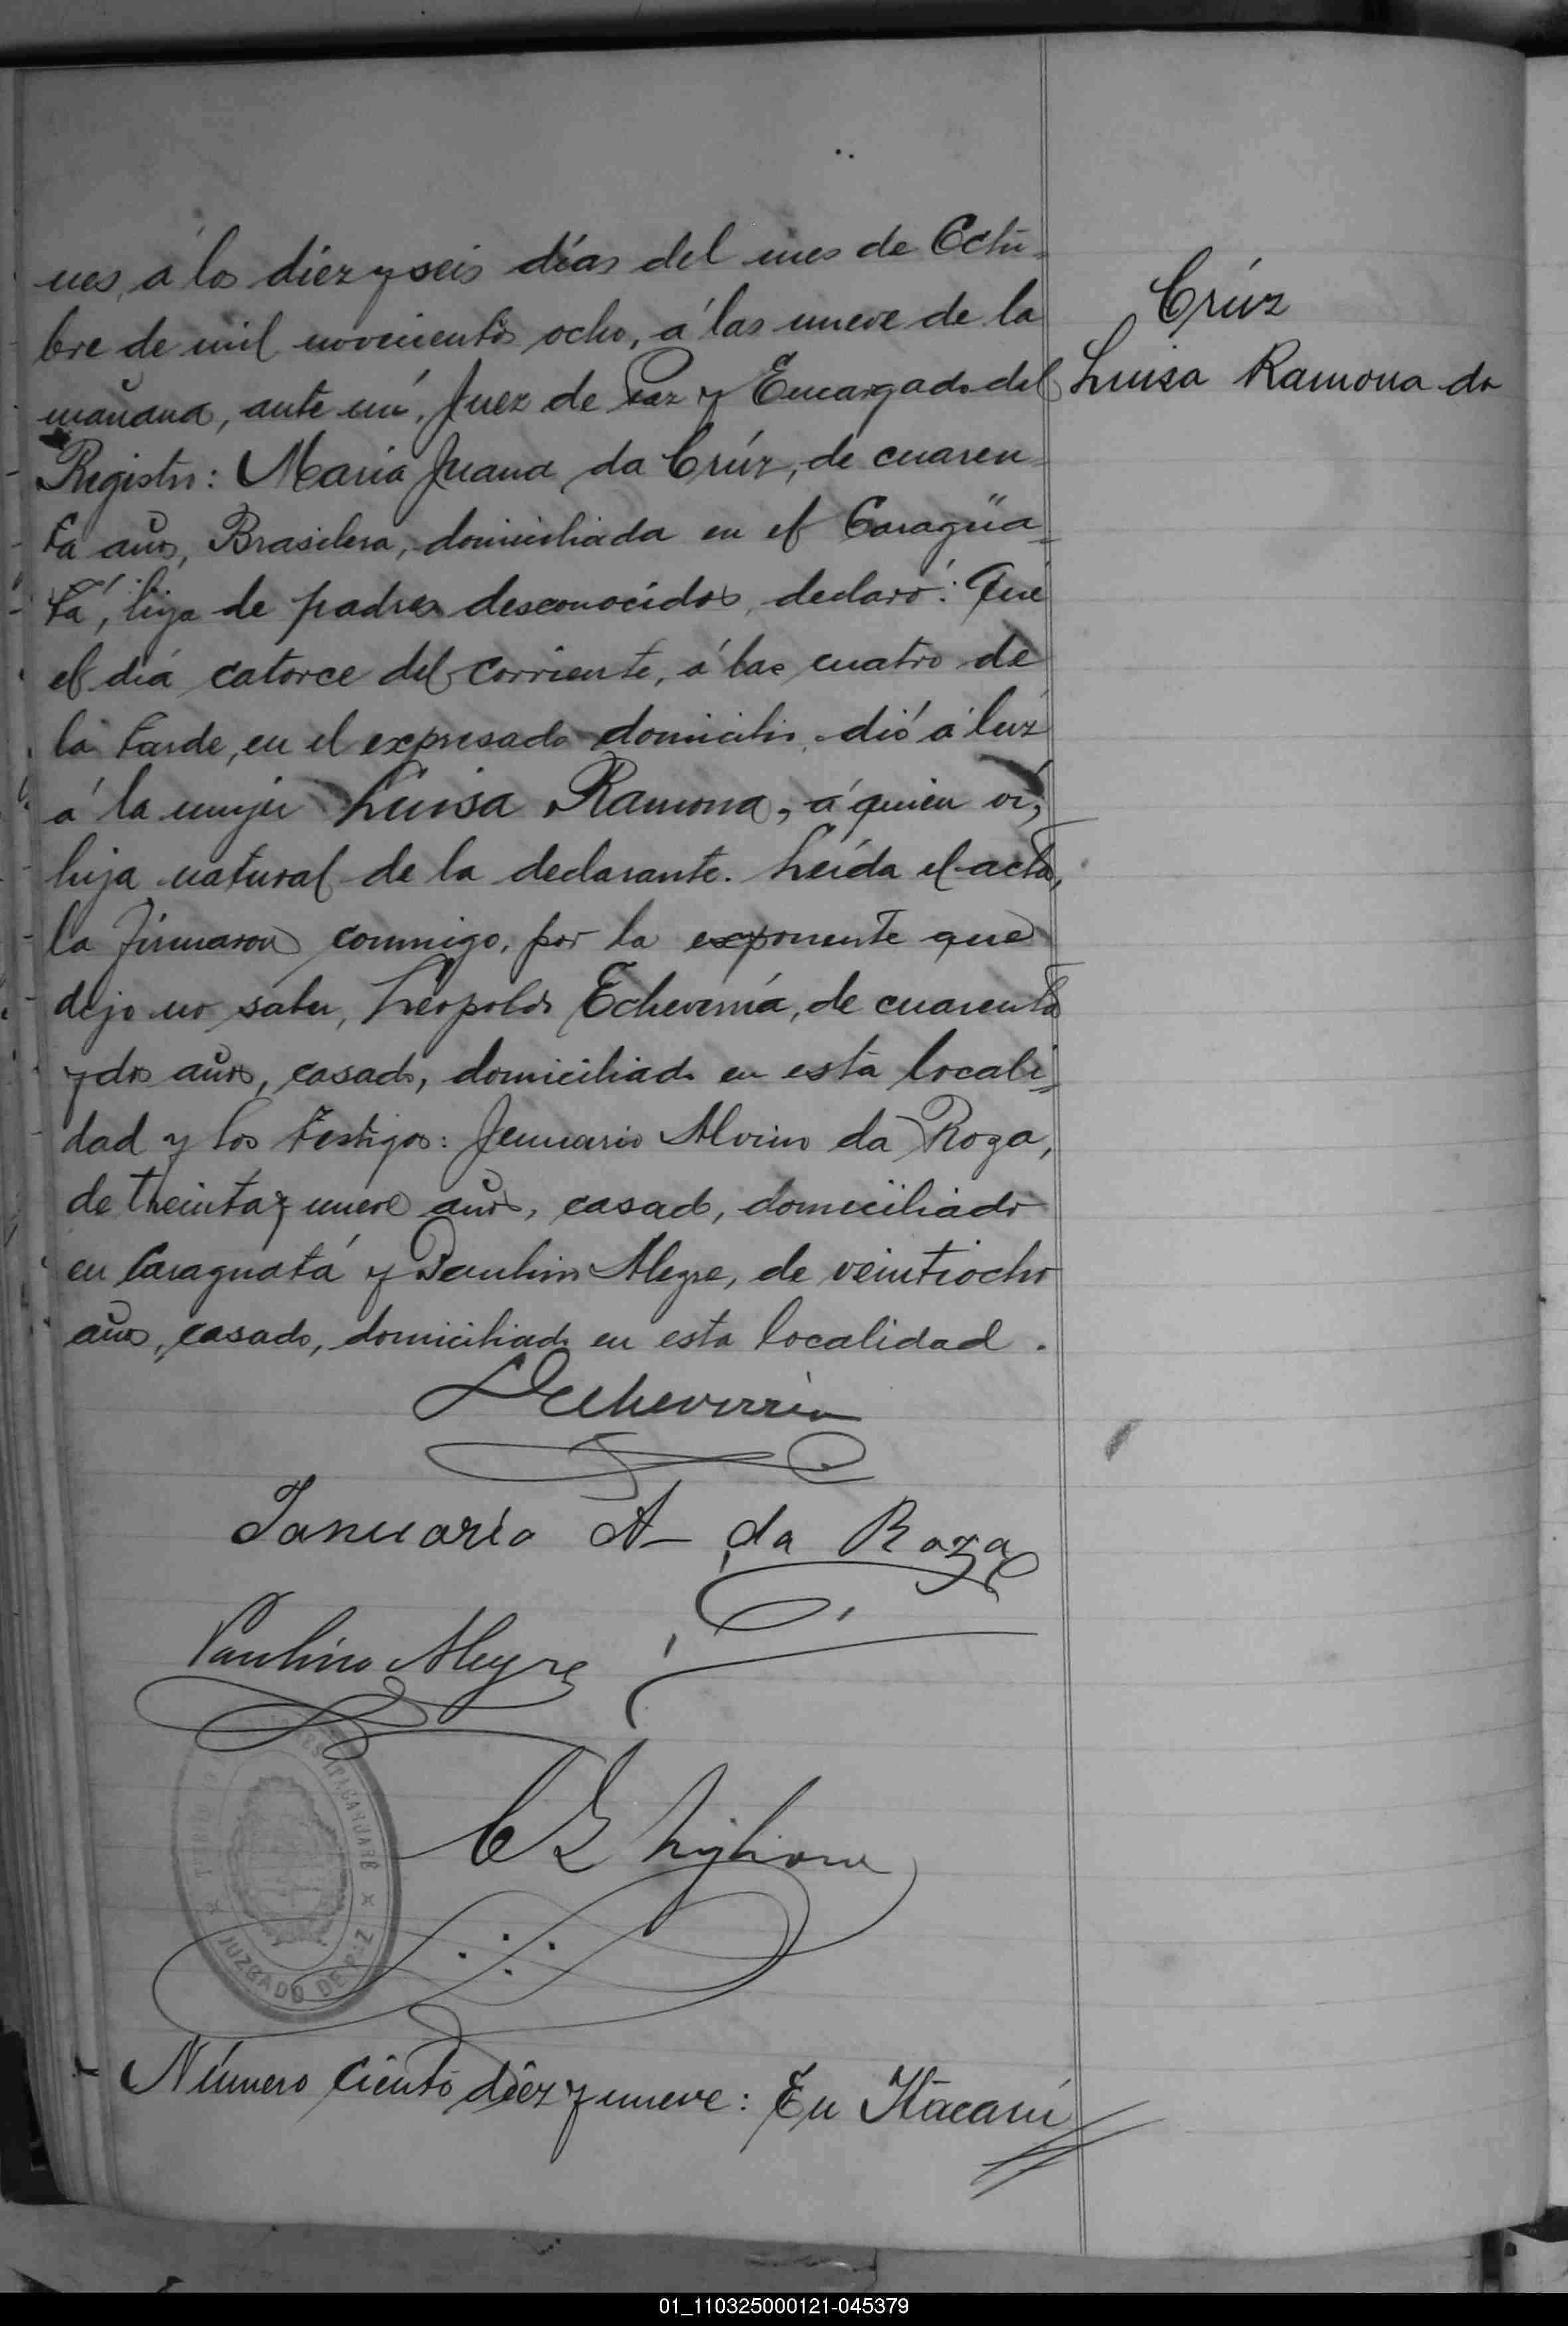 nes, á los diez y seis días del mes de Octu-
bre de mil novecientos ocho, á las nueve de la
mañana, ante mí, Juez de Paz y Encargado del
Registro: Maria Juana da Crúz, de cuaren-
ta años, Brasilera, domiciliada en el Caragüa-
tá, hija de padres desconocidos, declaró: Que
el día catorce del corriente, á las cuatro de
la tarde, en el expresado domicilio, dió á luz
á la mujer Luisa Ramona, á quien ví,
hija natural de la declarante. Leída el acta,
la firmaron conmigo, por la exponente que
dijo no saber, Leopoldo Echeverría, de cuarenta
y dos años, casado, domiciliado en esta locali-
dad y los testigos: Jenuario Alvino da Roza,
de treinta y nueve años, casado, domiciliado
en Caraguatá y Paulino Alegre, de veintiocho
años, casado, domiciliado en esta localidad.
Crúz
Luisa Ramona da
LEcheverria
Januario A- da Roza
Paulino Alegre
C Ghiglione
JUZGADO DE PAZ
Número ciento diez y nueve: En Itacaru
01_110325000121-045379